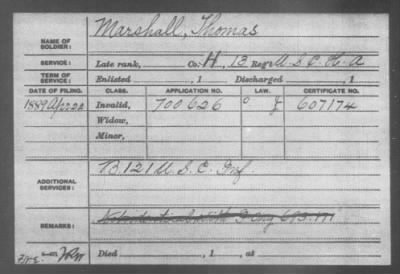 NAME OF SOLDIER: Marshall, Thomas
SERVICE: Late rank, Co. H, 13 Reg't U.S.C.H.A
TERM OF SERVICE: Enlisted , 1 Discharged , 1
DATE OF FILING. CLASS. APPLICATION NO. LAW. CERTIFICATE NO.
1889 Apr 22 Invalid, 700626 607174
Widow,
Minor,
ADDITIONAL SERVICES: B. 121 U.S.C. Inf.
REMARKS:
Died , 1 , at